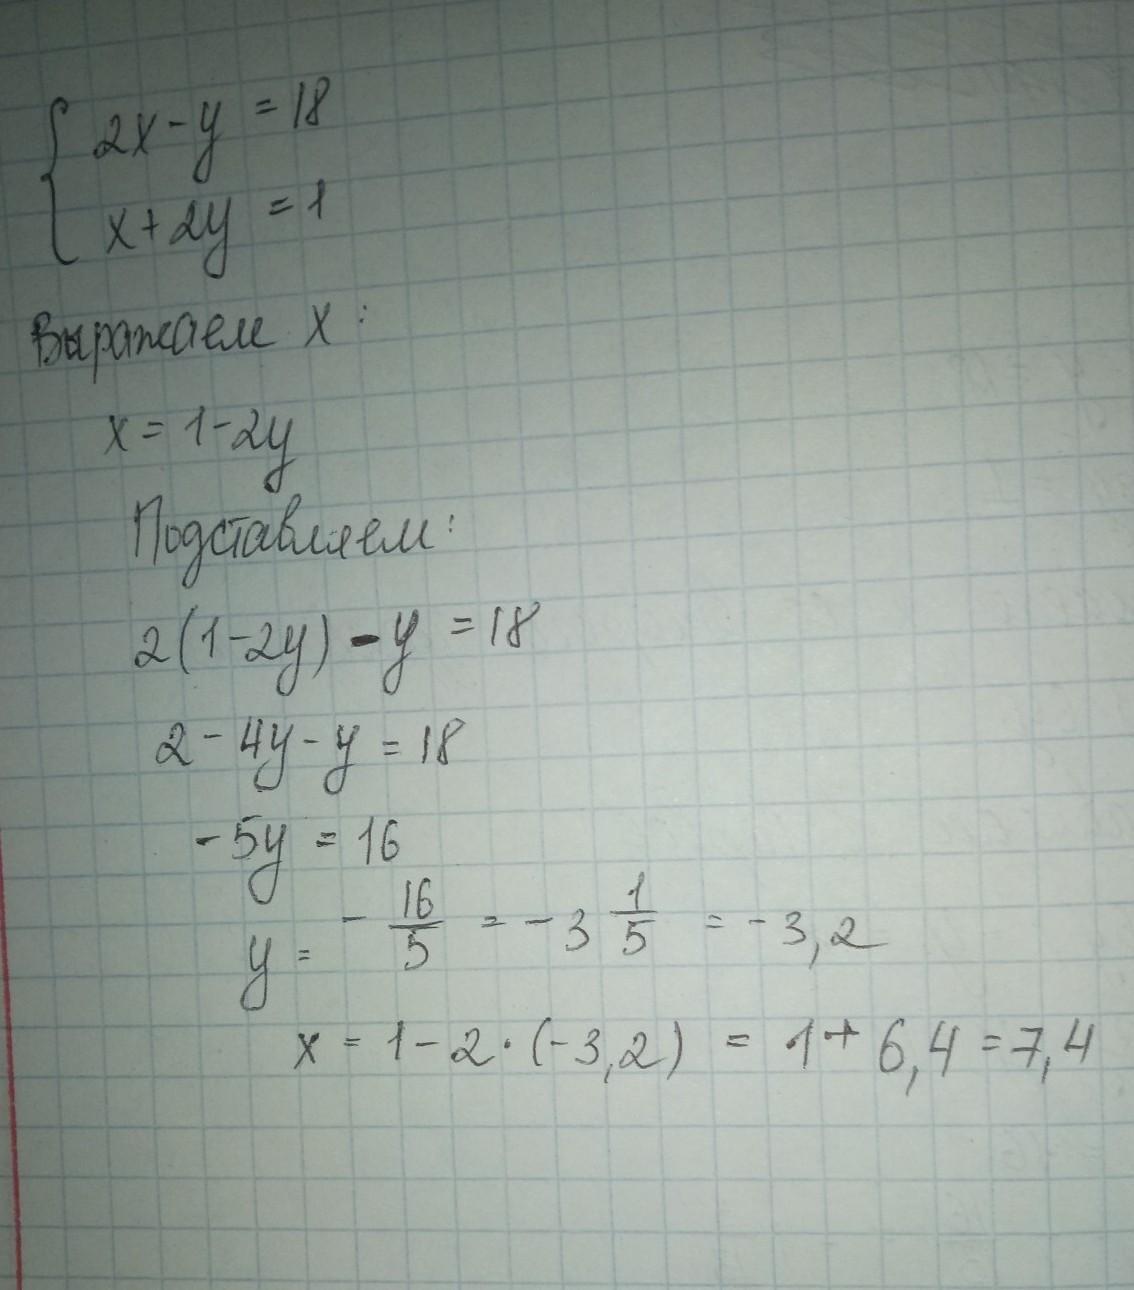 { 2x - y = 18
x + 2y = 1
Выражаем x:
x = 1 - 2y
Подставляем:
2(1 - 2y) - y = 18
2 - 4y - y = 18
-5y = 16
y = - 16/5 = -3 1/5 = -3,2
x = 1 - 2 · (-3,2) = 1 + 6,4 = 7,4